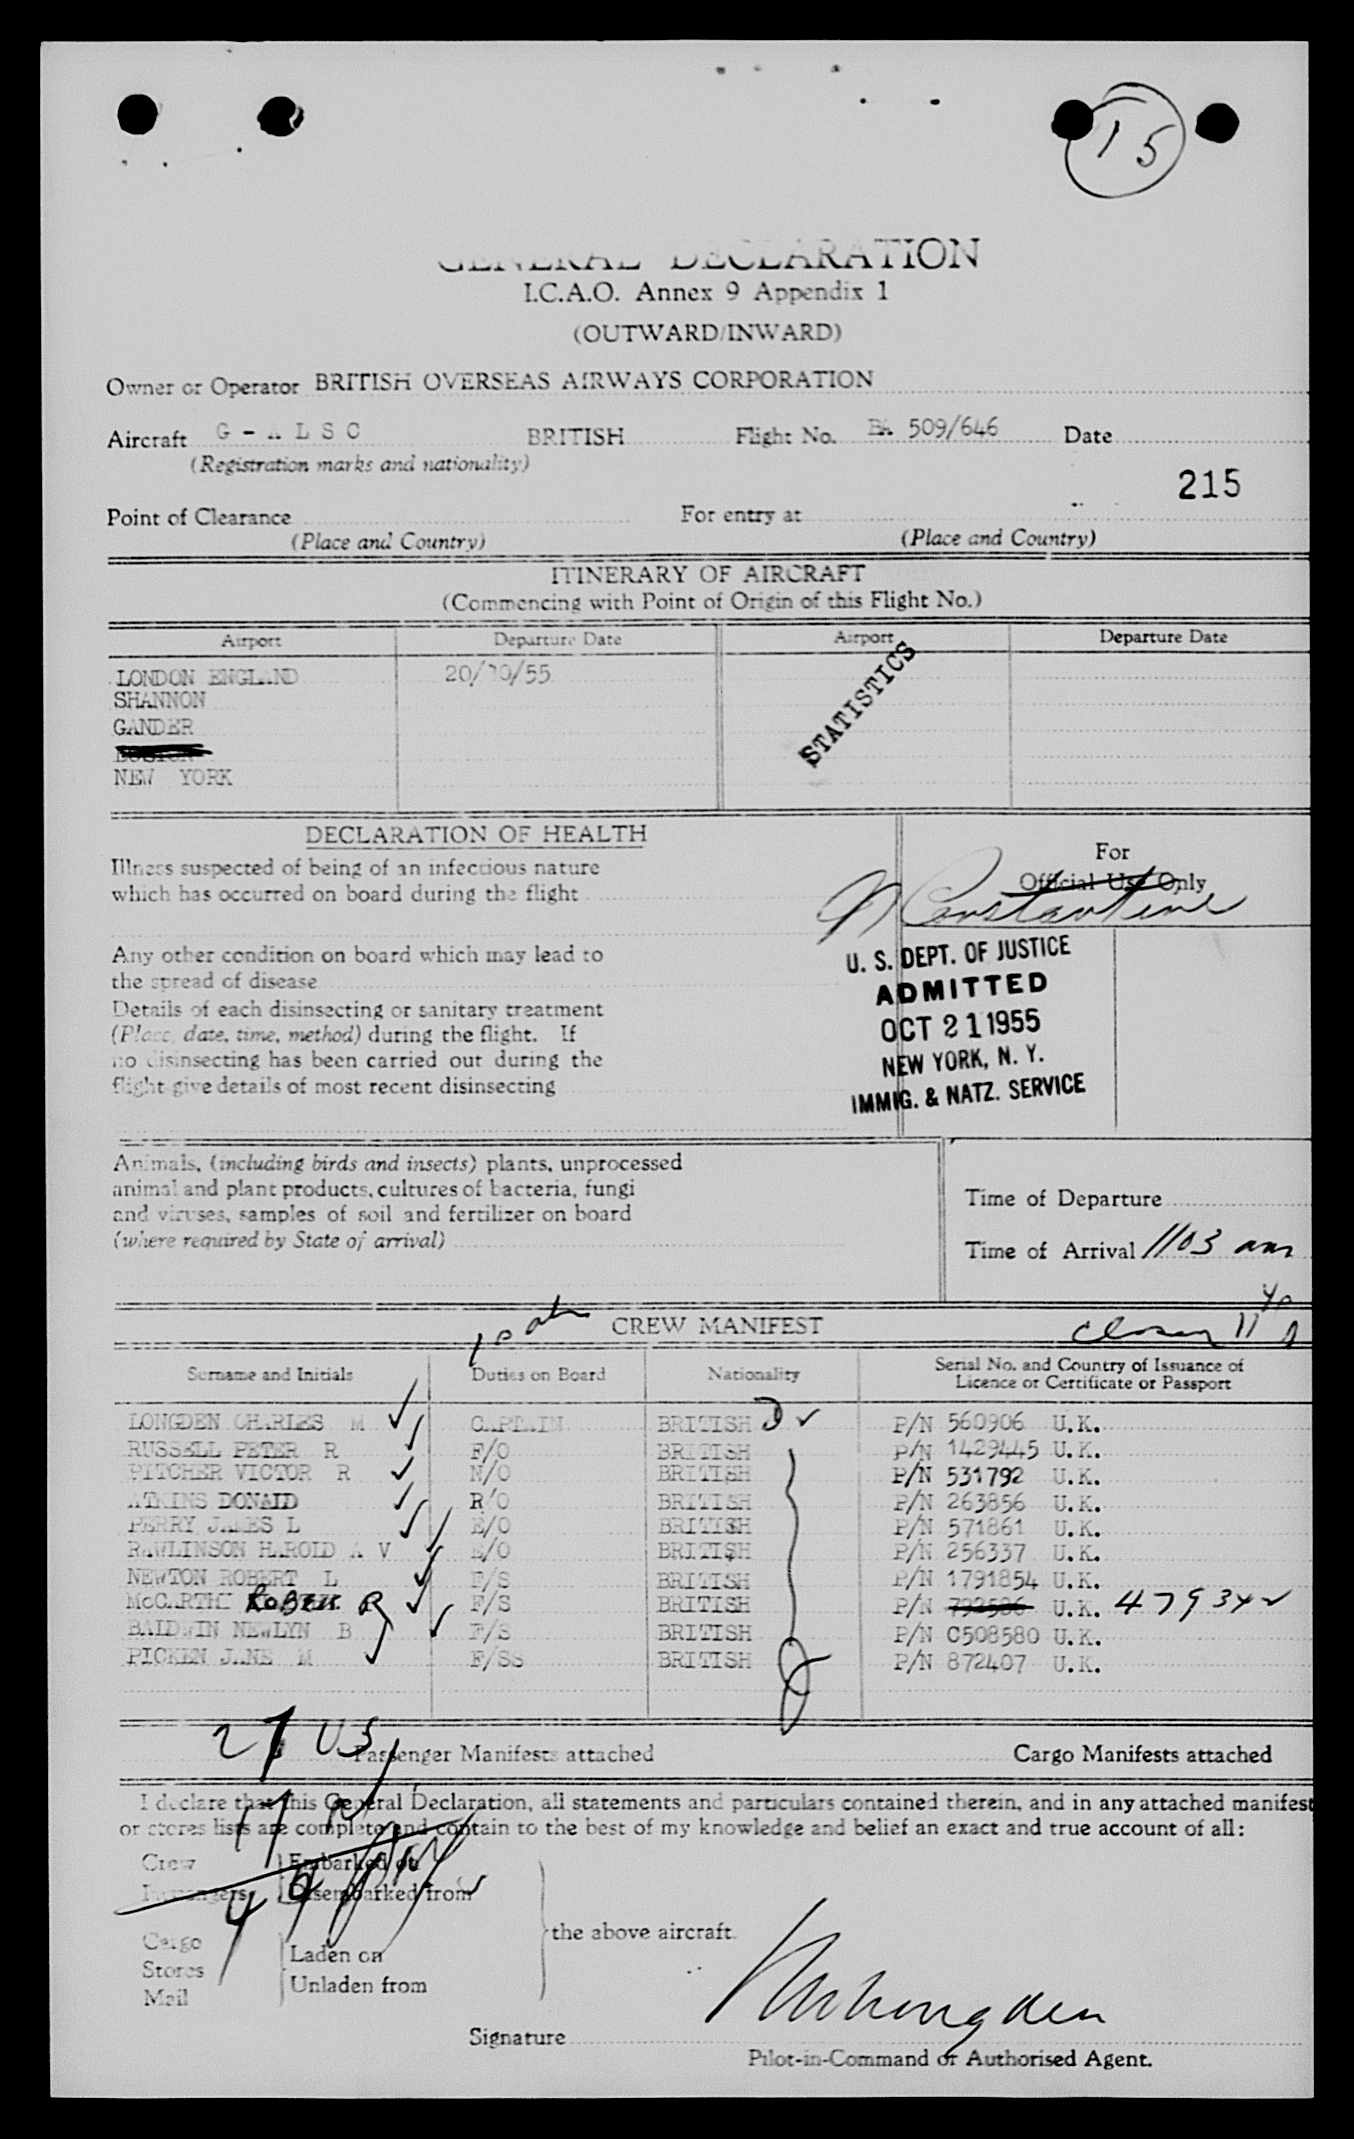 15
GENERAL DECLARATION
I.C.A.O. Annex 9 Appendix 1
(OUTWARD/INWARD)
Owner or Operator BRITISH OVERSEAS AIRWAYS CORPORATION
Aircraft G - A L S C BRITISH Flight No. BA 509/646 Date
(Registration marks and nationality)
215
Point of Clearance For entry at
(Place and Country) (Place and Country)
ITINERARY OF AIRCRAFT
(Commencing with Point of Origin of this Flight No.)
Airport Departure Date Airport Departure Date
LONDON ENGLAND 20/10/55
SHANNON
GANDER
BOSTON
NEW YORK
STATISTICS
DECLARATION OF HEALTH
Illness suspected of being of an infectious nature
which has occurred on board during the flight
For
Official Use Only
Constantine
Any other condition on board which may lead to
the spread of disease
Details of each disinsecting or sanitary treatment
(Place, date, time, method) during the flight. If
no disinsecting has been carried out during the
flight give details of most recent disinsecting
U. S. DEPT. OF JUSTICE
ADMITTED
OCT 21 1955
NEW YORK, N. Y.
IMMIG. & NATZ. SERVICE
Animals, (including birds and insects) plants, unprocessed
animal and plant products, cultures of bacteria, fungi
and viruses, samples of soil and fertilizer on board
(where required by State of arrival)
Time of Departure
Time of Arrival 1103 am
CREW MANIFEST
Surname and Initials Duties on Board Nationality Serial No. and Country of Issuance of
Licence or Certificate or Passport
LONGDEN CHARLES M CAPTAIN BRITISH P/N 560906 U.K.
RUSSELL PETER R F/O BRITISH P/N 1429445 U.K.
PITCHER VICTOR R N/O BRITISH P/N 531792 U.K.
ATKINS DONALD R/O BRITISH P/N 263856 U.K.
PERRY JAMES L E/O BRITISH P/N 571861 U.K.
RAWLINSON HAROLD A V E/O BRITISH P/N 256337 U.K.
NEWTON ROBERT L F/S BRITISH P/N 1791854 U.K.
McCARTHY ROBERT R F/S BRITISH P/N 792586 U.K. 47934
BALDWIN NEWLYN B F/S BRITISH P/N C508580 U.K.
PICKEN JANE M F/SS BRITISH P/N 872407 U.K.
27 US
Passenger Manifests attached Cargo Manifests attached
I declare that this General Declaration, all statements and particulars contained therein, and in any attached manifest
or stores lists are complete and contain to the best of my knowledge and belief an exact and true account of all:
17
Crew Embarked on
Passengers Disembarked from
44
the above aircraft.
Cargo Laden on
Stores
Unladen from
Mail
Signature
Pilot-in-Command or Authorised Agent.